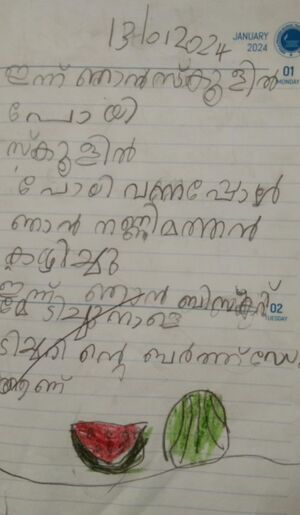 13/01/2024
JANUARY
2024
01
MONDAY
ഇന്ന് ഞാൻ സ്കൂളിൽ
പോയി
സ്കൂളിൽ
പോയി വന്നപ്പോൾ
ഞാൻ തണ്ണിമത്തൻ
കഴിച്ചു
ഇന്ന് ഞാൻ ബിസ്ക്കറ്റ്
നാളെ
02
TUESDAY
ടീച്ചറിൻ്റെ ബർത്ത്ഡേ
ആണ്